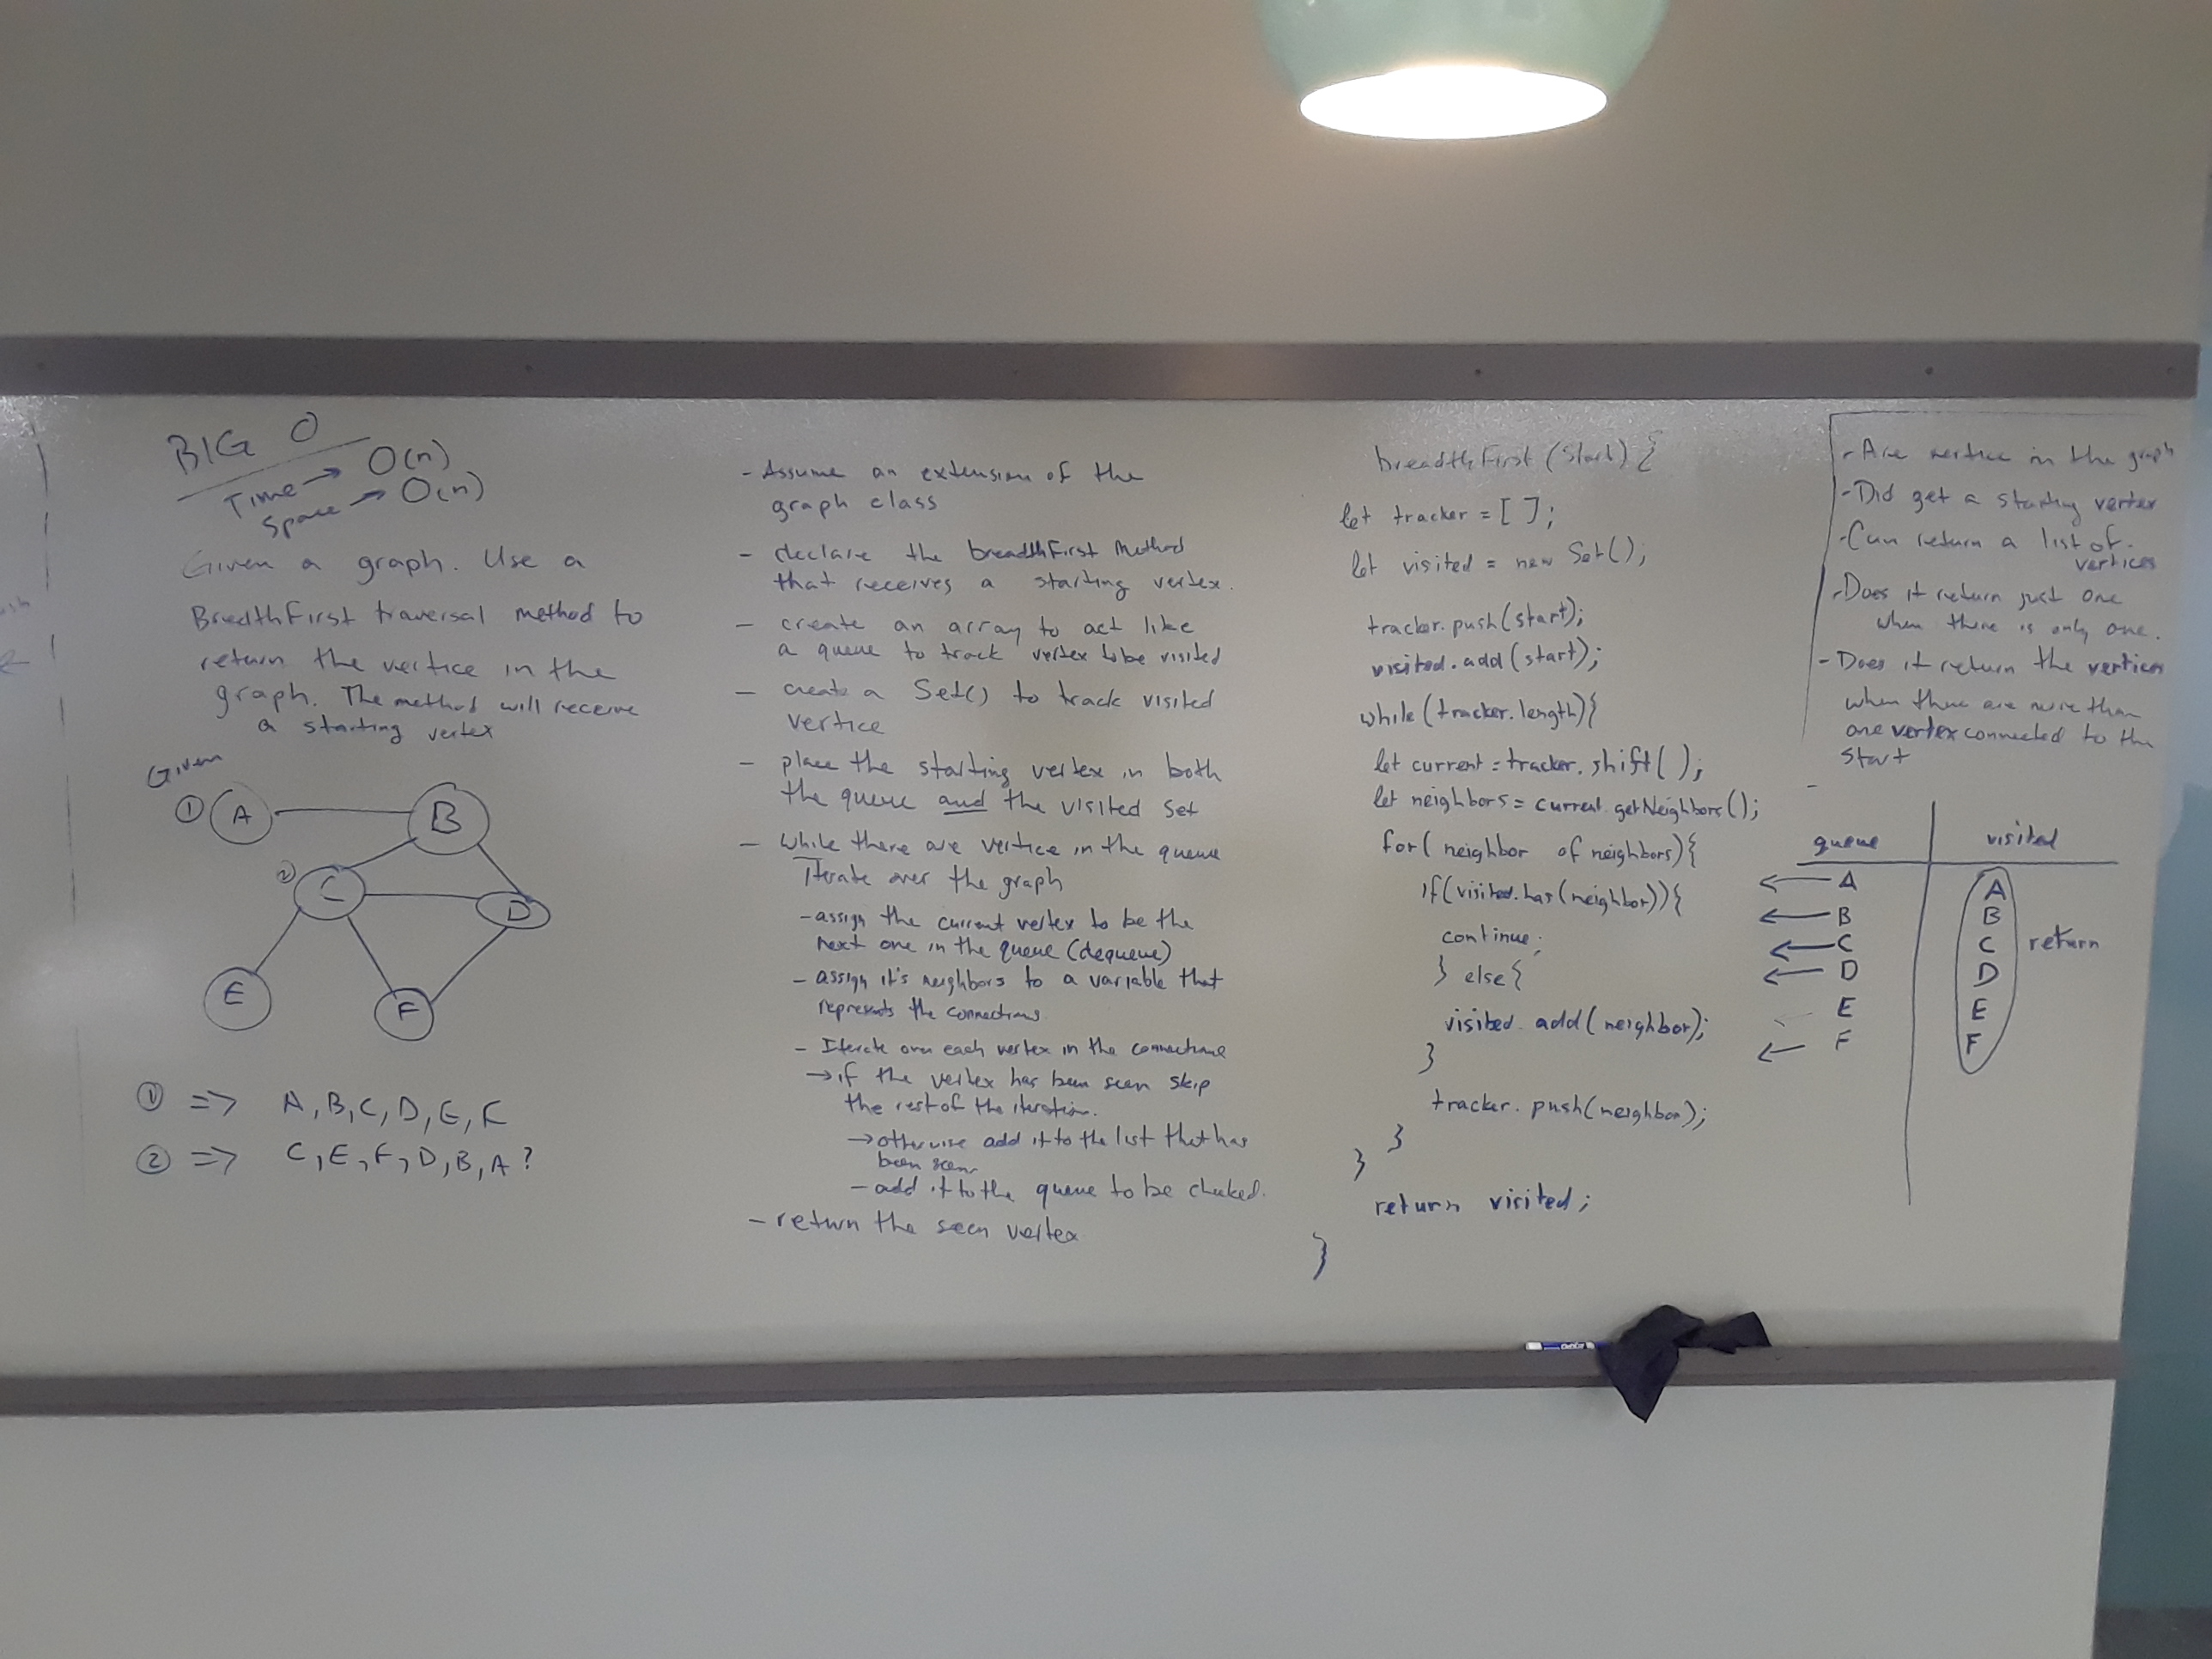 BIG O
Time → O(n)
Space → O(n)
Given a graph. Use a
BredthFirst traversal method to
return the vertice in the
graph. The method will receive
a starting vertex
Given
① A
B
② C
D
E
F
① => A, B, C, D, E, F
② => C, E, F, D, B, A ?
- Assume an extension of the
graph class
- declare the breadthFirst Method
that receives a starting vertex.
- create an array to act like
a queue to track vertex to be visited
- create a Set() to track visited
vertice
- place the starting vertex in both
the queue and the visited set
- while there are vertice in the queue
Iterate over the graph
- assign the current vertex to be the
next one in the queue (dequeue)
- assign it's neighbors to a variable that
represents the connections.
- Iterate over each vertex in the connections
→ if the vertex has been seen skip
the rest of the iteration.
→ otherwise add it to the list that has
been seen
- add it to the queue to be checked.
- return the seen vertex
breadthFirst(start) {
let tracker = [ ];
let visited = new Set();
tracker.push(start);
visited.add(start);
while(tracker.length){
let current = tracker.shift( );
let neighbors = current.getNeighbors();
for( neighbor of neighbors){
if(visited.has(neighbor)){
continue;
} else{
visited.add(neighbor);
}
tracker.push(neighbor);
}
}
return visited;
}
- Are vertice in the graph
- Did get a starting vertex
- Can return a list of
vertices
- Does it return just one
when there is only one.
- Does it return the vertices
when there are more than
one vertex connected to the
start
-
queue visited
← A A
← B B
← C C return
← D D
E E
← F F